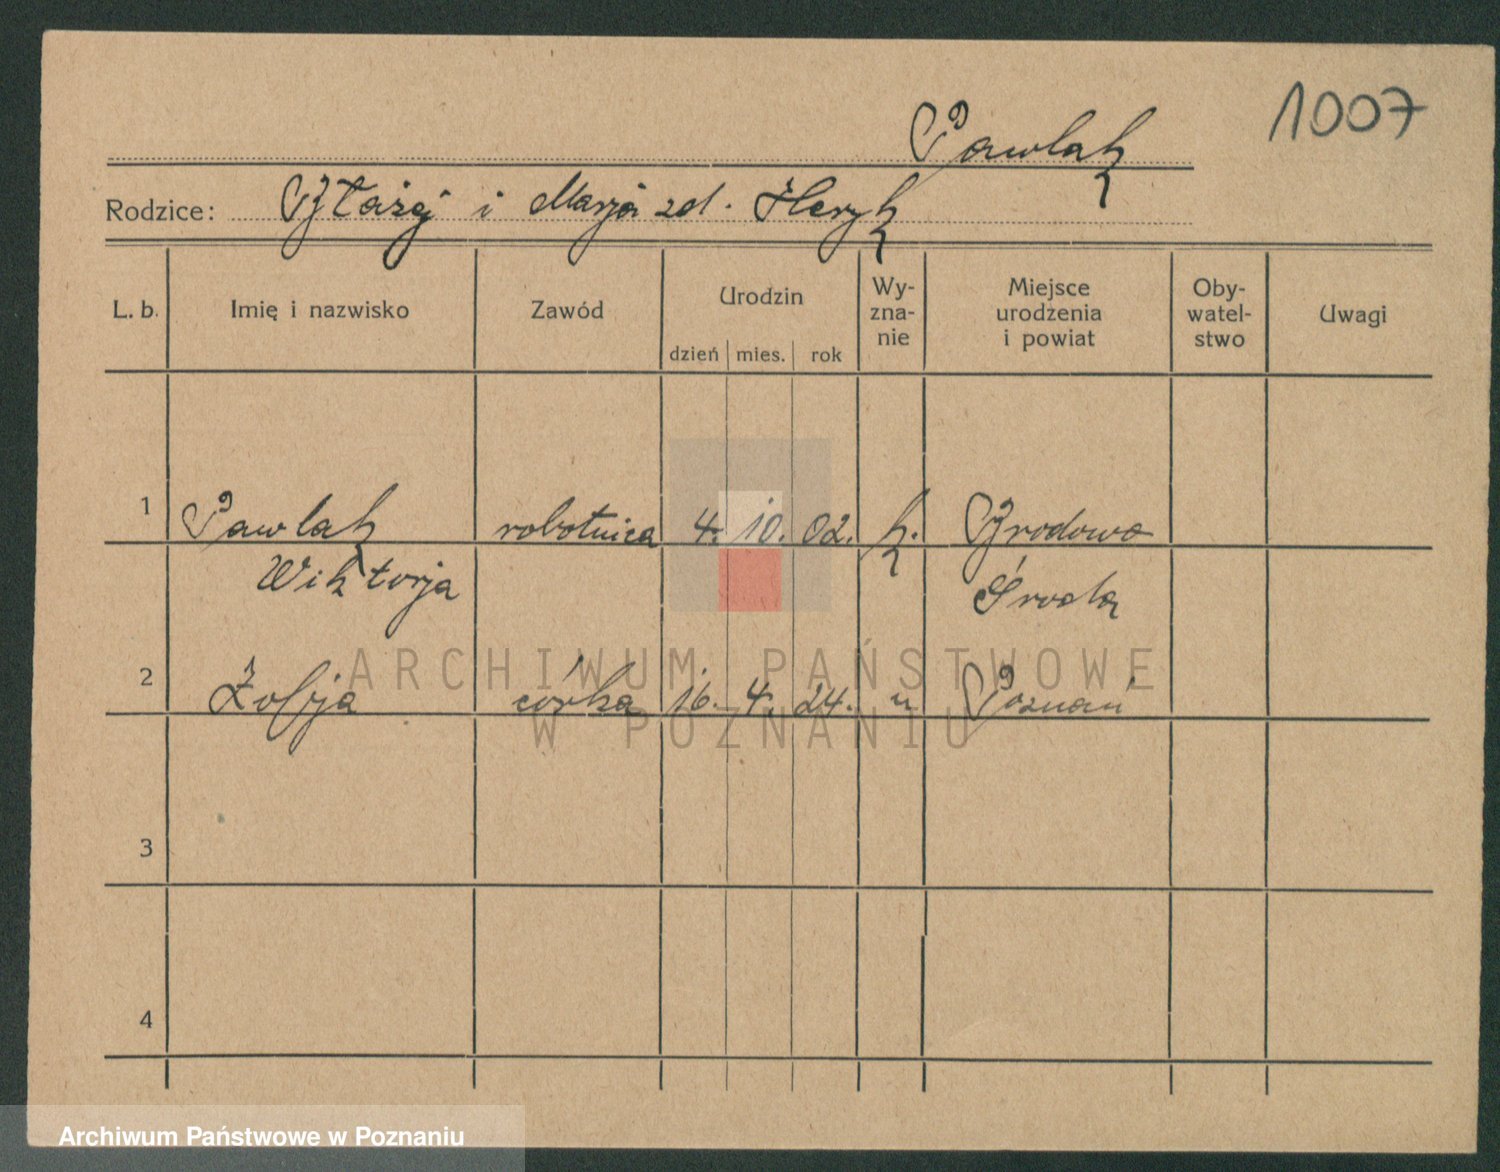 1007
Pawlak
Rodzice: Błażej i Marja zd.
L. b. Imię i nazwisko Zawód Urodzin dzień mies. rok Wy-zna-nie Miejsce urodzenia i powiat Oby-watel-stwo Uwagi
1 Pawlak robotnica 4. 10. 02. k. Brodowo
Wiktorja Środa
2 Zofja córka 16. 4. 24. " Poznań
3
4
ARCHIWUM PAŃSTWOWE
W POZNANIU
Archiwum Państwowe w Poznaniu